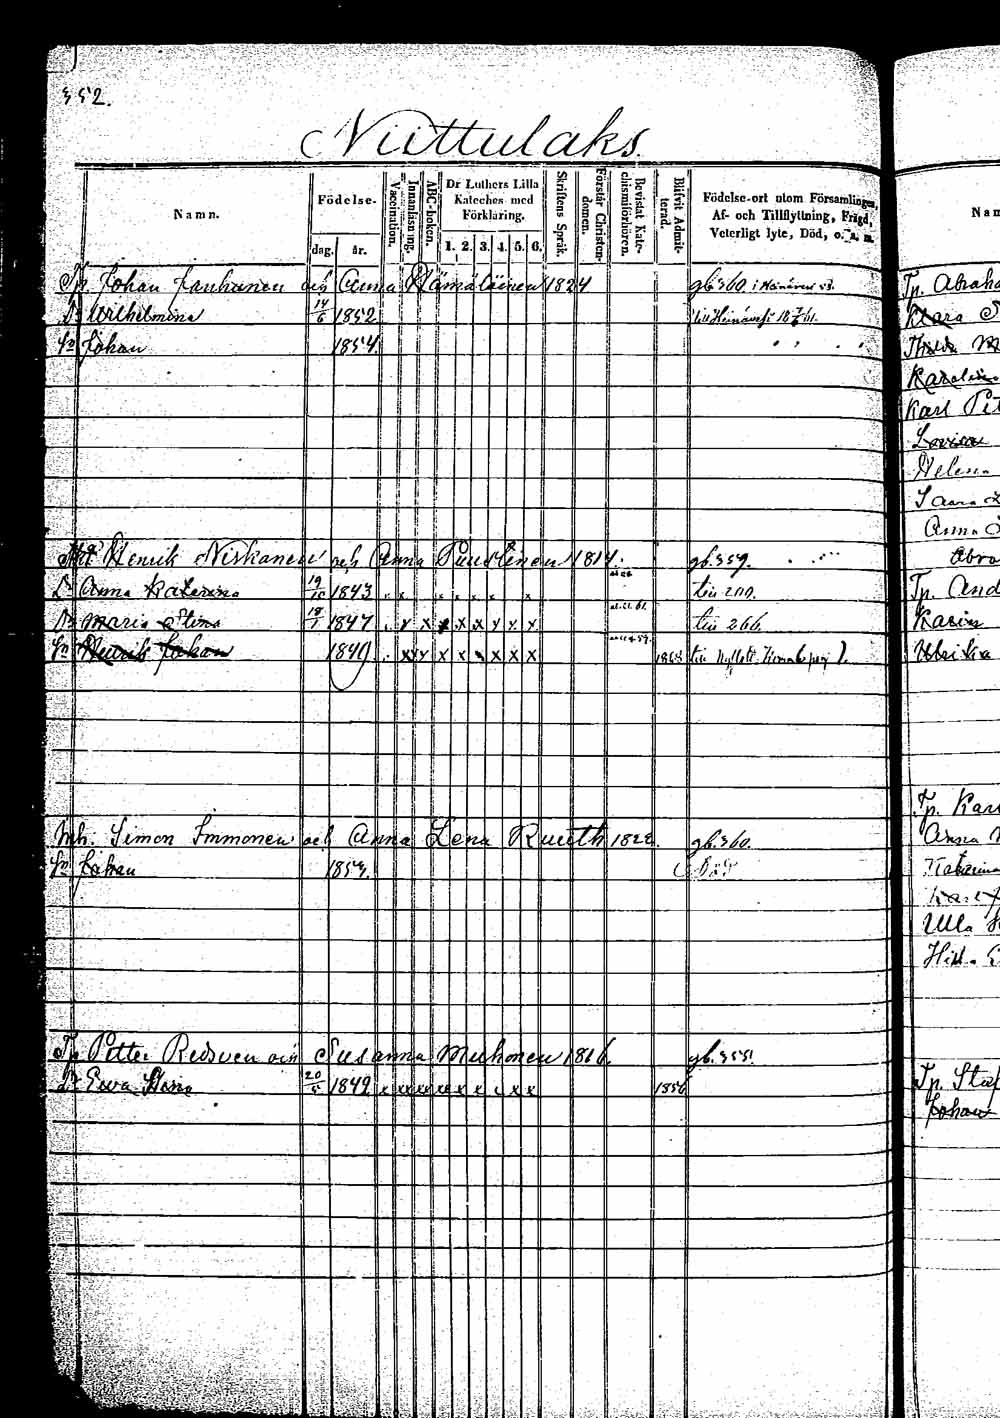 352.
Niittulaks.
Namn. Födelse- dag. år. Vaccination. Innanläsning. ABC-boken. Dr Luthers Lilla Kateches med Förklaring. 1. 2. 3. 4. 5. 6. Skriftens Språk. Förstår Christendomen. Bevistat Katechismiförhören. Blifvit Admitterad. Födelse-ort utom Församlingen, Af- och Tillflyttning, Frägd, Veterligt lyte, Död, o. s. m.
Tp. Johan Janhunen och Anna Hämäläinen 1824 gb. 360.
Dr Wilhelmina 14/6 1852 till Heinävesi
Sn Johan 1854.
Henrik Niskanen och Anna Puustinen 1814. gb. 359.
Dr Anna Katerina 19/10 1843 x x x x x x x till 200.
Dr Maria Stina 18/1 1847 x x x x x x x x till 266.
Sn Henrik Johan 1849 x x x x x x x x x 1868 till
Inh. Simon Immonen och Anna Lena Ruuth 1822. gb. 360.
Sn Johan 1854. Död
Tp Petter Redsven och Susanna Muhonen 1816. gb. 355.
Dr Ewa Stina 20/5 1842 x x x x x x x x x 1856
Nam
Tp. Abraha
Klara
Karolin
Karl Pet
Lovisa
Helena
Saara
Anna
Abra
Tp. And
Karin
Ulrika
Tp. Karl
Anna
Katarina
Karl
Ulla
Tp. Staf
Johan